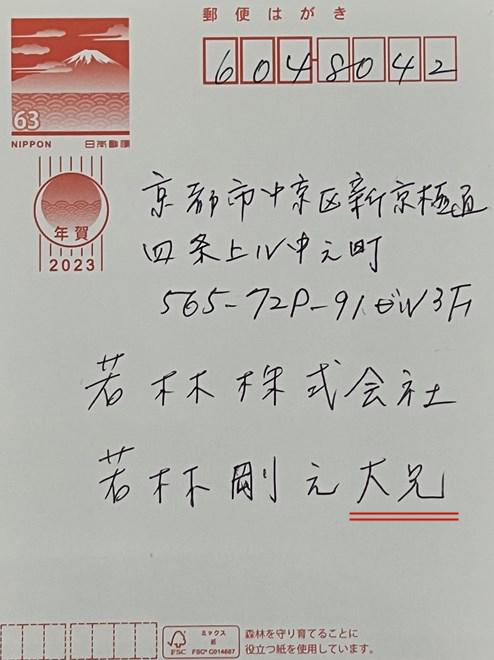 郵便はがき
6048042
63
NIPPON 日本郵便
年賀
2023
京都市中京区新京極通
四条上ル中之町
565-72P-91ビル3F
若林株式会社
若林剛之大兄
FSC
ミックス
紙
FSC® C014687
森林を守り育てることに
役立つ紙を使用しています。